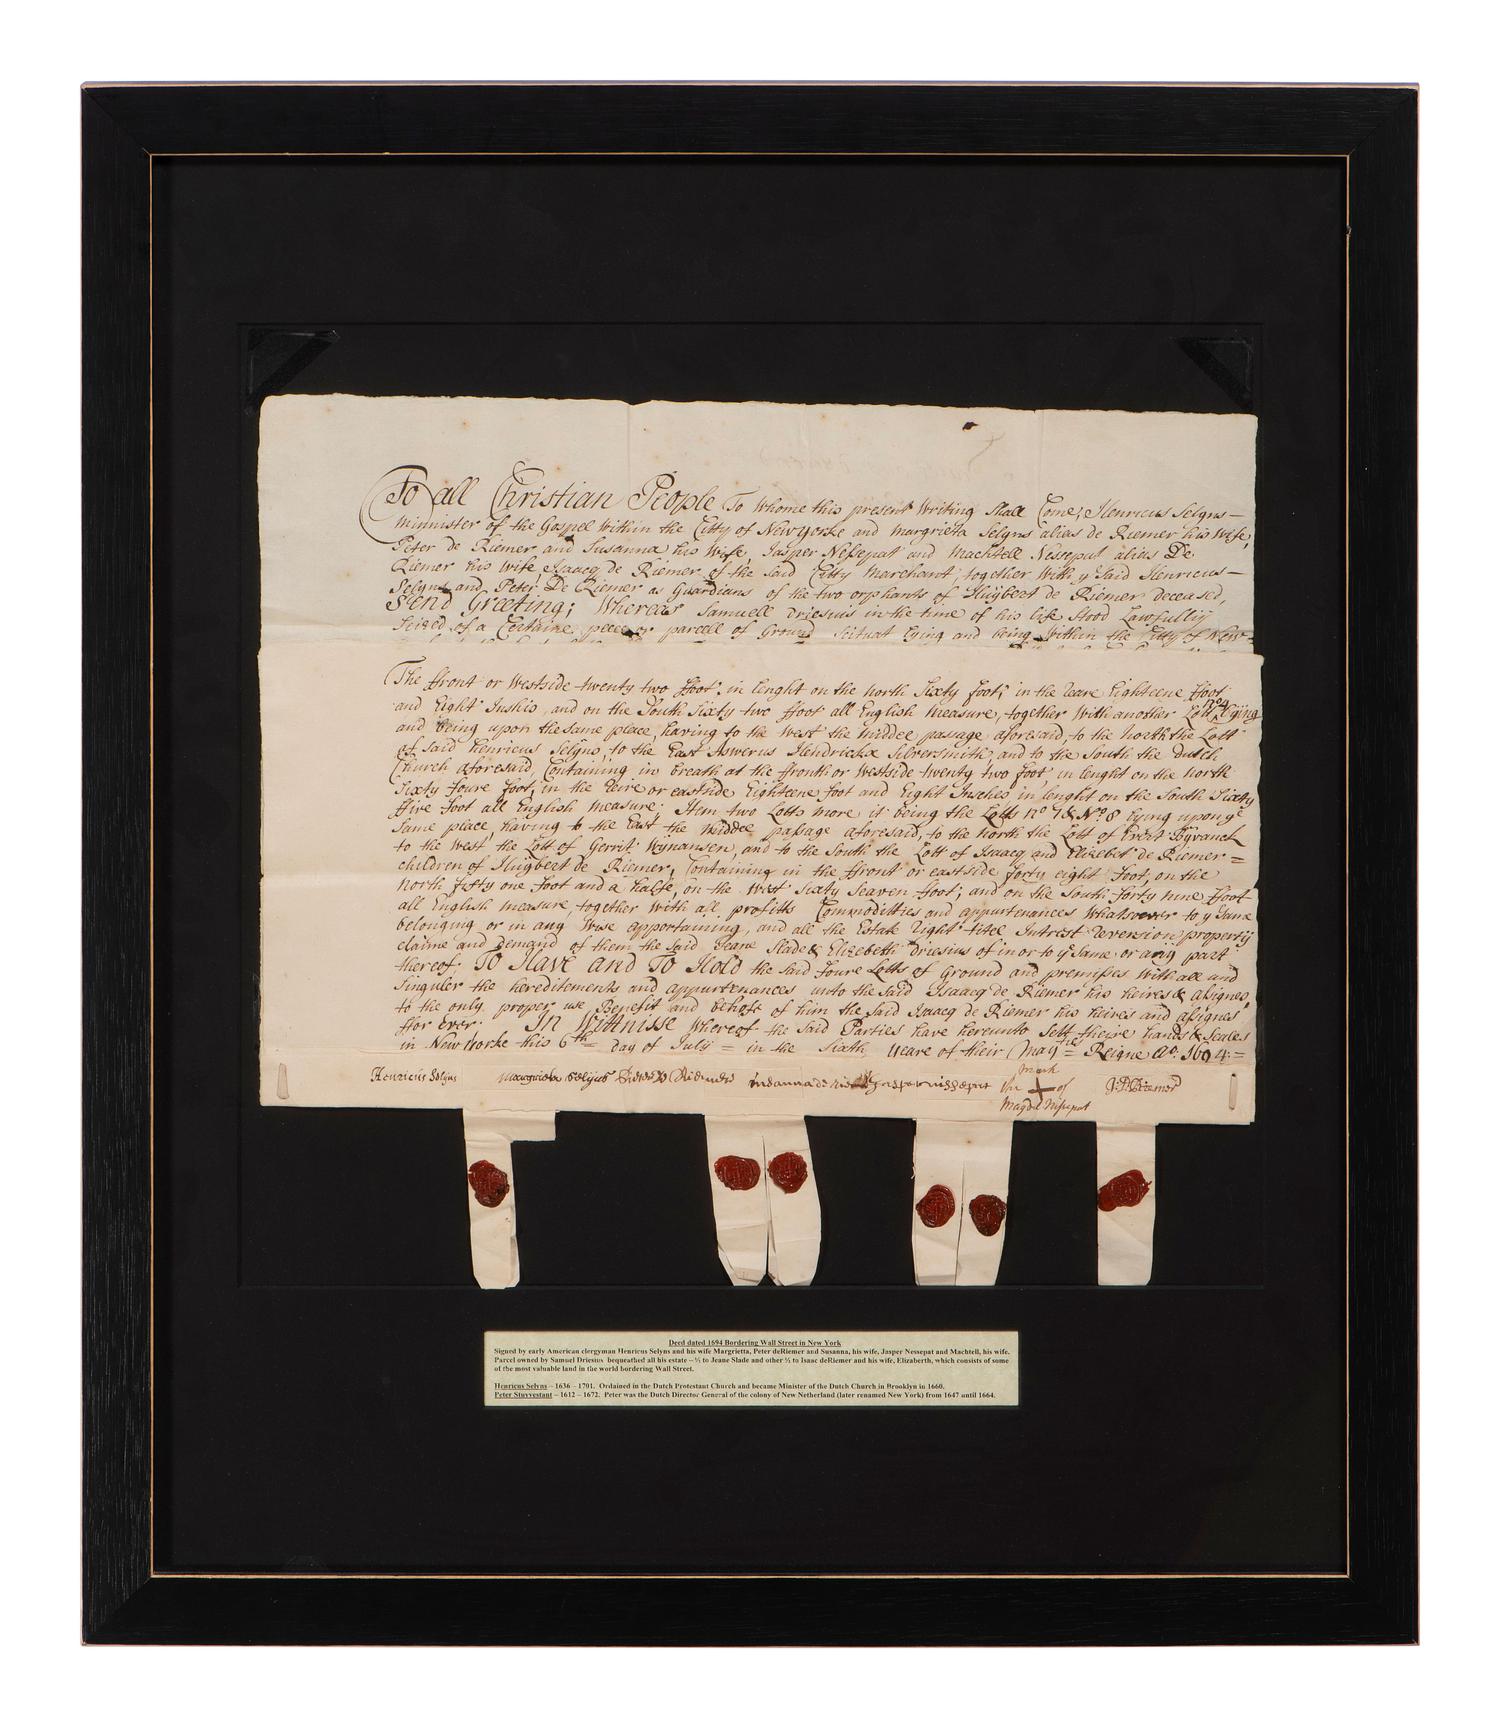 To all Christian People To Whome this present Writing Shall Come; Henricus Selyns
Minnister of the Gospel Within the Citty of New Yorke and Margrieta Selyns alias de Riemer his Wife,
Peter de Riemer and Susanna his Wife, Jasper Neßepat and Machtell Nessepat alias De
Riemer his wife Isaacq de Riemer of the said Citty Marchant, together With y Said Henricus
Selyns and Peter De Riemer as Guardians of the two orphants of Huijbert de Riemer deceased,
Send Greeting; Whereas Samuell Driesius in the time of his life Stood Lawfullij
Seized of a Certaine peece or parcell of Ground Scituat Lying and being Within the Citty of New=
The ffront or Westside twenty two ffoot, in lenght on the north Sixty foot, in the reare Eighteene ffoot
and Eight Inshis, and on the South Sixty two ffoot all English Measure, together With another Lott no 4 Lying
and being upon the same place, having to the West the Middle passage aforesaid, to the north the Lott
of said Henricus Selyns, to the East Aswerus Hendricksz Silversmith, and to the South the Dutch
Church aforesaid, Containing in breath at the ffronth or Westside twenty two foot, in lenght on the north
Sixty foure foot, in the reire or eastside Eighteene foot and Eight Inches in lenght on the South Sixty
ffive foot all English Measure: Item two Lotts more it being the Lotts no 7 & No 8 lying upon ye
Same place, having to the East the Middle paßage aforesaid, to the north the Lott of Evert Bijvanck
to the West the Lott of Gerrit Wynansen, and to the South the Lott of Isaacq and Elizebet de Riemer =
children of Huijbert de Riemer, Containing in the ffront or eastside forty eight foot, on the
north fifty one foot and a halfe, on the West Sixty Seaven ffoot; and on the South forty nine ffoot
all English Measure, together With all profitts Commoditties and appurtenances Whatsoever to y Same
belonging or in any Wise appertaining, and all the Estate Right titel Intrest Reversion property
claime and Demand of them the said Jeane Slade & Elizebeth Driesius of in or to ye Same or anij part
thereof: To Have and To Hold the said foure Lotts of Ground and premißes With all and
Singuler the hereditements and appurtenances unto the said Isaacq de Riemer his heires & aßignes,
to the only proper use Benefit and behofe of him the said Isaacq de Riemer his heires and aßignes
ffor ever: In Wittnisse Whereof the said Parties have hereunto Sett theire hands & Seales
in New Yorke this 6th = day of Julij = in the Sixth Yeare of their Maytie = Reigne Ao. 1694 =
Henricus Selyns
Margrieta Selijns
mark
the + of
Magdel Nißepat
Deed dated 1694 Bordering Wall Street in New York
Signed by early American clergyman Henricus Selyns and his wife Margrietta, Peter deRiemer and Susanna, his wife, Jasper Nessepat and Machtell, his wife.
Parcel owned by Samuel Driesius bequeathed all his estate – ½ to Jeane Slade and other ½ to Isaac deRiemer and his wife, Elizaberth, which consists of some
of the most valuable land in the world bordering Wall Street.
Henricus Selyns – 1636 – 1701. Ordained in the Dutch Protestant Church and became Minister of the Dutch Church in Brooklyn in 1660.
Peter Stuyvestant – 1612 – 1672. Peter was the Dutch Director General of the colony of New Netherland (later renamed New York) from 1647 until 1664.